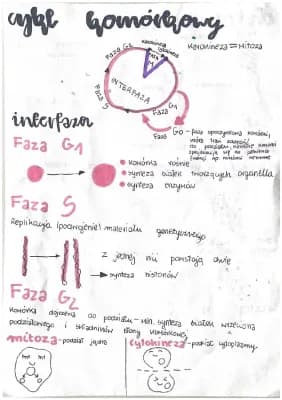 cykl komórkowy
Kariokineza = Mitoza
kariokineza
cytokineza
Faza G2
INTERFAZA
Faza S
G1
Faza
interfaza
G0 - faza spoczynkowa komórki,
Faza G1
komórka rośnie
synteza białek tworzących organella
synteza enzymów
Faza S
Replikacja (podwojenie) materiału genetycznego
z jednej nici powstają dwie
synteza histonów
Faza G2
komórka dojrzewa do podziału - min. synteza białek wrzeciona
podziałowego i składników błony komórkowej
mitoza - podział jądra
cytokineza - podział cytoplazmy